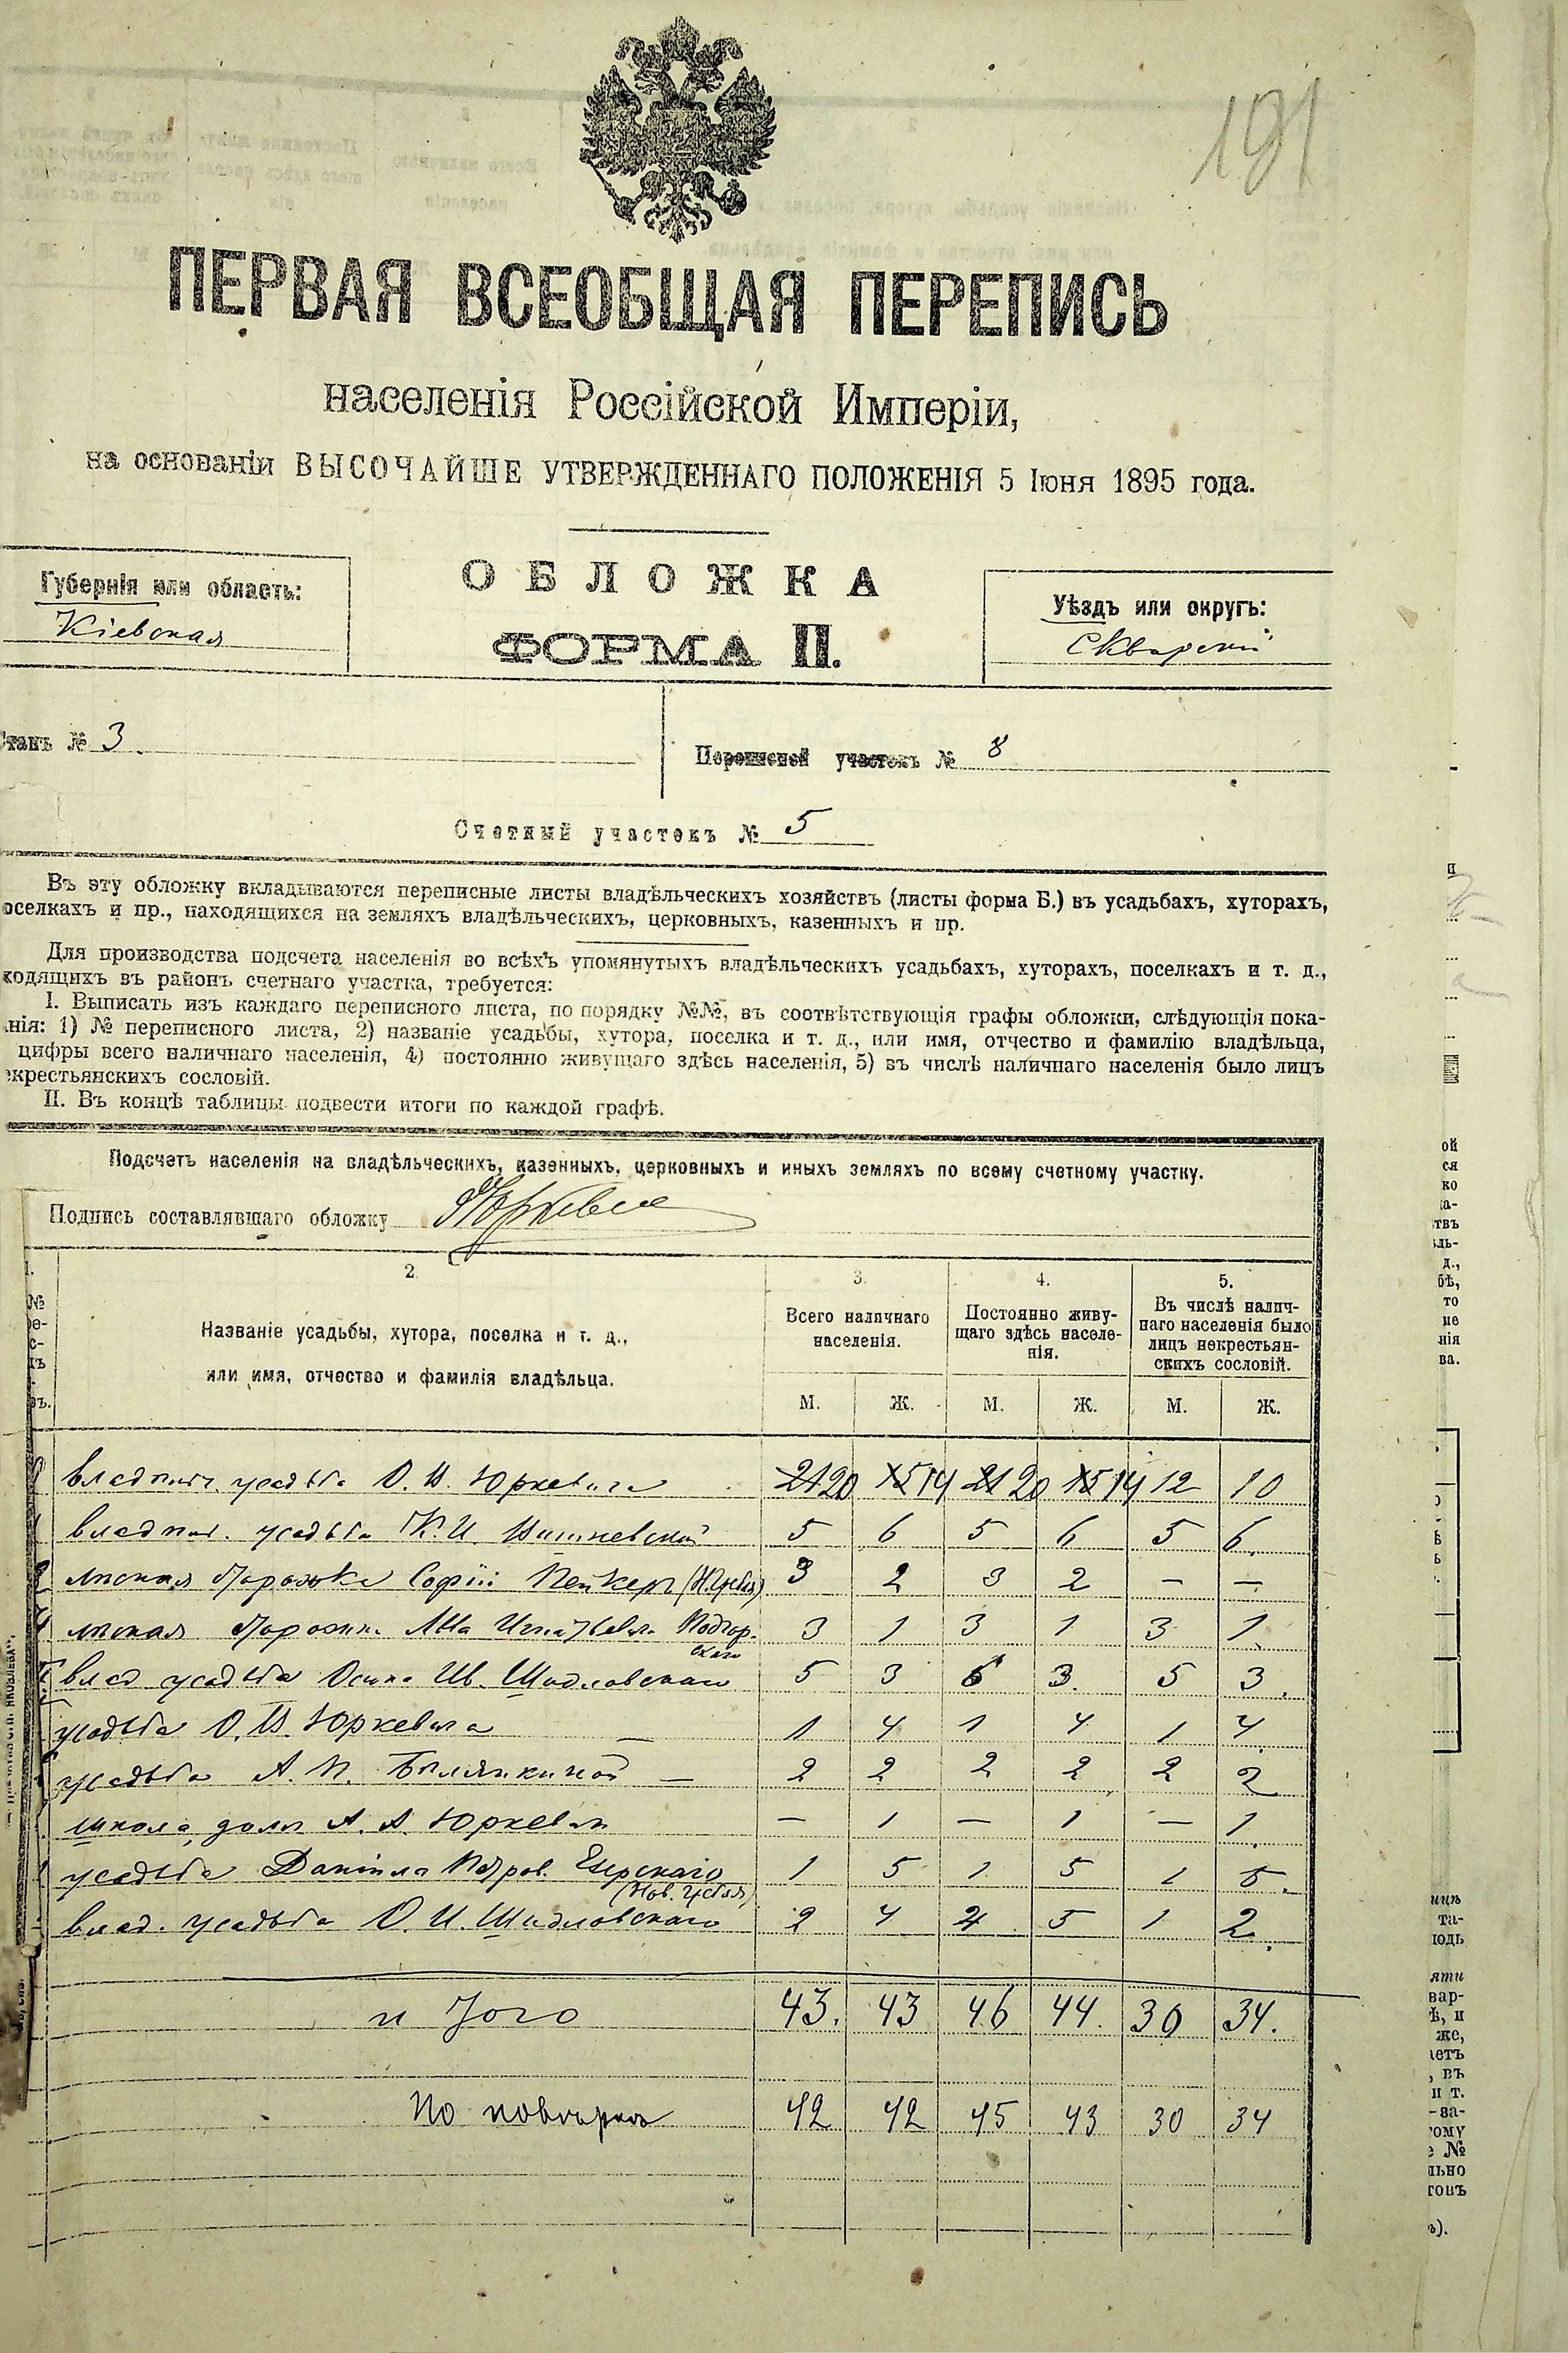 191
ПЕРВАЯ ВСЕОБЩАЯ ПЕРЕПИСЬ
населенія Россійской Имперіи,
на основаніи ВЫСОЧАЙШЕ УТВЕРЖДЕННАГО ПОЛОЖЕНІЯ 5 Іюня 1895 года.
Губернія или область:
Кіевская
ОБЛОЖКА
ФОРМА II.
Уѣздъ или округъ:
Сквирскій
Станъ № 3.
Переписной участокъ № 8
Счетный участокъ № 5
Въ эту обложку вкладываются переписные листы владѣльческихъ хозяйствъ (листы форма Б.) въ усадьбахъ, хуторахъ,
оселкахъ и пр., находящихся на земляхъ владѣльческихъ, церковныхъ, казенныхъ и пр.
Для производства подсчета населенія во всѣхъ упомянутыхъ владѣльческихъ усадьбахъ, хуторахъ, поселкахъ и т. д.,
ходящихъ въ районъ счетнаго участка, требуется:
I. Выписать изъ каждаго переписного листа, по порядку №№, въ соотвѣтствующія графы обложки, слѣдующія пока-
нія: 1) № переписного листа, 2) названіе усадьбы, хутора, поселка и т. д., или имя, отчество и фамилію владѣльца,
цифры всего наличнаго населенія, 4) постоянно живущаго здѣсь населенія, 5) въ числѣ наличнаго населенія было лицъ
екрестьянскихъ сословій.
II. Въ концѣ таблицы подвести итоги по каждой графѣ.
Подсчетъ населенія на владѣльческихъ, казенныхъ, церковныхъ и иныхъ земляхъ по всему счетному участку.
Подпись составлявшаго обложку
1. 2. 3. 4. 5.
№ Названіе усадьбы, хутора, поселка и т. д., или имя, отчество и фамилія владѣльца.
Всего наличнаго населенія.
Постоянно живущаго здѣсь населенія.
Въ числѣ наличнаго населенія было лицъ некрестьянскихъ сословій.
М. Ж. М. Ж. М. Ж.
усадьба О. И. Юркевича 21 20 15 14 21 20 15 14 12 10
усадьба К. И. Вишневской 5 6 5 6 5 6.
лѣсная сторожка Софіи 3 2 3 2 — —
лѣсная Подгорскаго 3 1 3 1 3 1.
влад усадьба Осипа Ив. Шидловскаго 5 3 6 3. 5 3.
усадьба О. И. Юркевича — 1 4 1 4 1 4.
усадьба А. П. — 2 2 2 2 2 2
школа, домъ А. А. Юркевич — 1 — 1 — 1.
усадьба Даніила Петров. 1 5 1 5 1 5.
влад. усадьба О. И. Шидловскаго 2 4 4 5 1 2.
итого 43. 43 46 44. 30 34.
По повѣркѣ 42 42 45 43 30 34